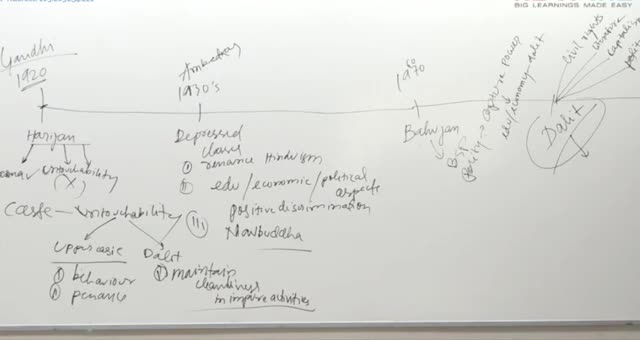 BIG LEARNINGS MADE EASY
Gandhi
1920
Harijan
Untouchability
(X)
Caste - Untouchability
Upper caste
① behaviour
② penance
Dalit
maintain
cleanliness
in impure activities
Ambedkar
1930's
Depressed
classes
① renounce Hinduism
② edu/economic/political
aspects
III positive discrimination
Navbuddha
1970
Bahujan
BSP
Polity → capture power
edu/economy - dalit
Civil rights
literature
capitalism
Dalit